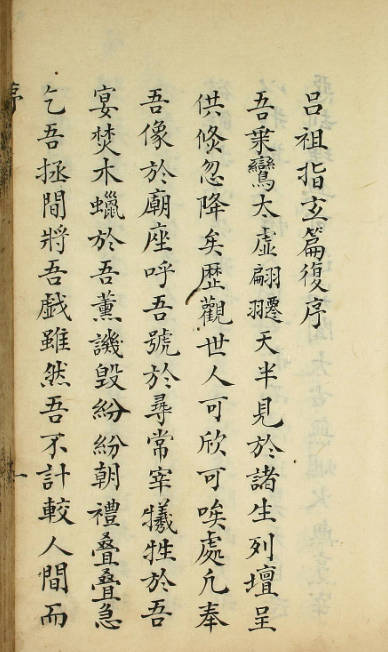 呂祖指玄篇復序
吾乗鸞太虛翩䙴天半見於諸生列壇呈
供倐忽降矣歴觀世人可欣可唉處凡奉
吾像於廟座呼吾號於尋常宰犧牲於吾
宴焚木蠟於吾薰譏毀紛紛朝禮叠叠急
乞吾拯閒將吾戯雖然吾不計較人間而
序
一